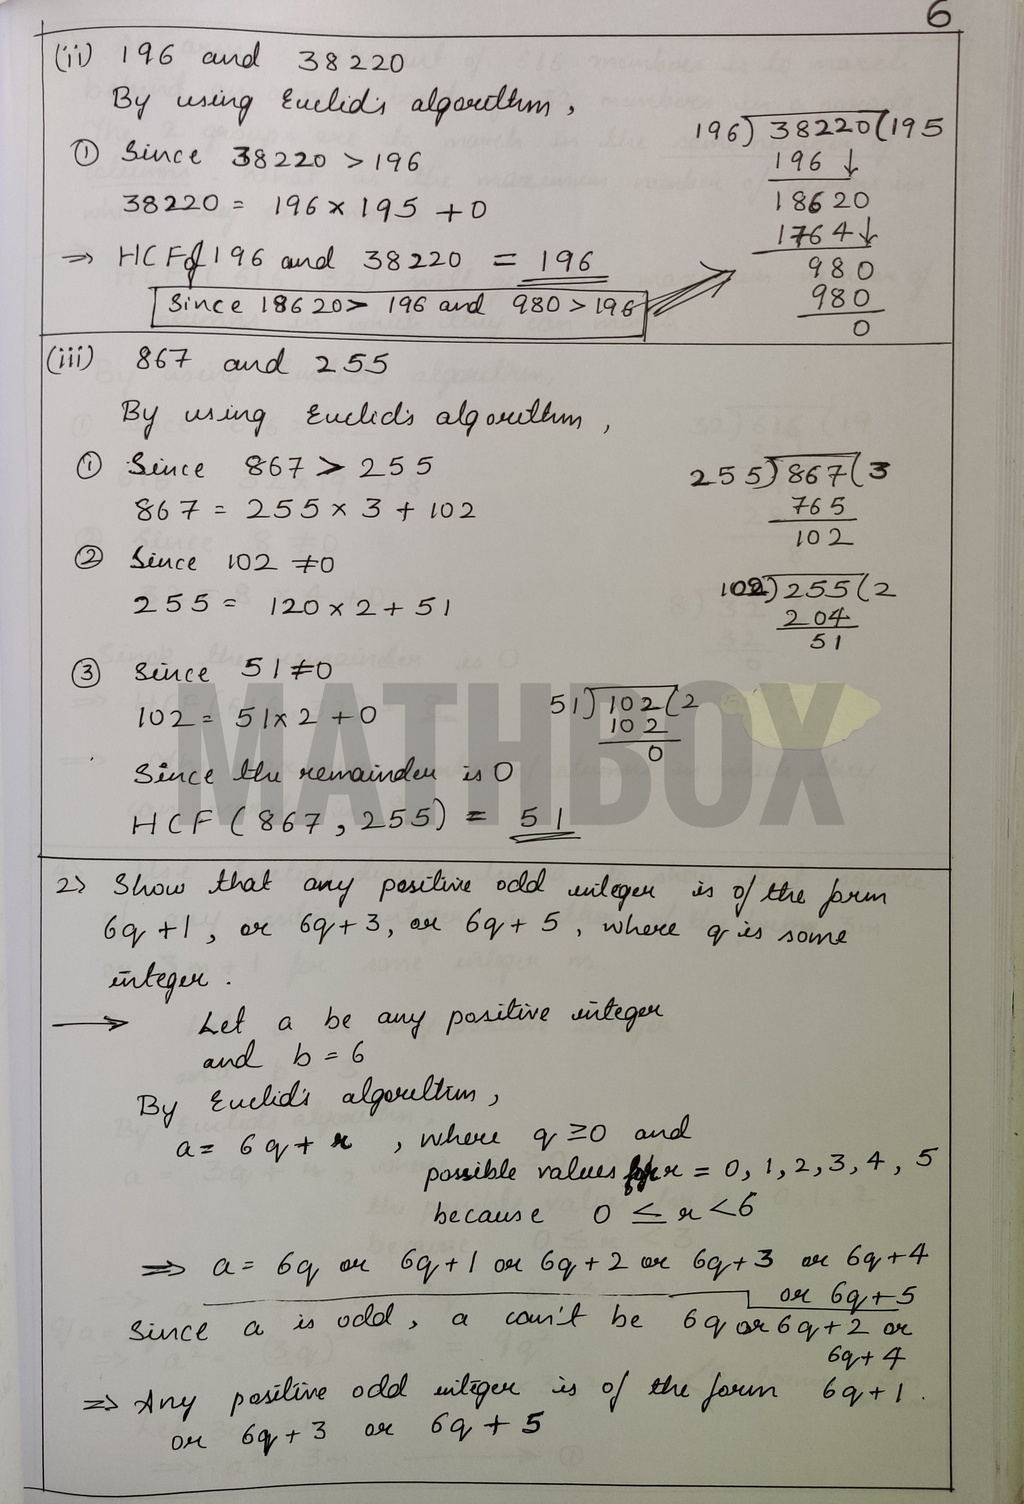 6
(ii) 196 and 38220
By using Euclid's algorithm,
① Since 38220 > 196
38220 = 196 × 195 + 0
⇒ HCF of 196 and 38220 = 196
Since 18620 > 196 and 980 > 196
196) 38220 (195
196 ↓
18620
1764 ↓
980
980
0
(iii) 867 and 255
By using Euclid's algorithm,
① Since 867 > 255
867 = 255 × 3 + 102
255) 867 (3
765
102
② Since 102 ≠ 0
255 = 120 × 2 + 51
102) 255 (2
204
51
③ Since 51 ≠ 0
102 = 51 × 2 + 0
51) 102 (2
102
0
Since the remainder is 0
HCF (867, 255) = 51
MATHBOX
2) Show that any positive odd integer is of the form
6q + 1, or 6q + 3, or 6q + 5, where q is some
integer.
→ Let a be any positive integer
and b = 6
By Euclid's algorithm,
a = 6q + r, where q ≥ 0 and
possible values of r = 0, 1, 2, 3, 4, 5
because 0 ≤ r < 6
⇒ a = 6q or 6q + 1 or 6q + 2 or 6q + 3 or 6q + 4
or 6q + 5
Since a is odd, a can't be 6q or 6q + 2 or
6q + 4
⇒ Any positive odd integer is of the form 6q + 1.
or 6q + 3 or 6q + 5